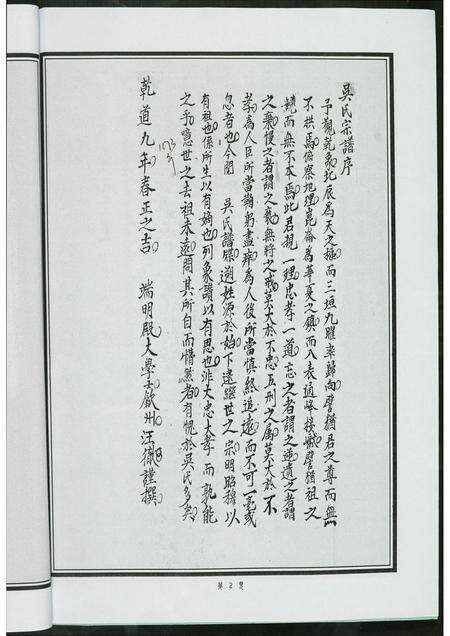 吳氏宗譜序
予觀乾象北辰為天之極而三垣九曜來歸向譬猶君之尊而無
不拱焉俯察地理崑崙為華夏之鎮而八表通峰接巘譬猶祖之
嫡而無不本焉此君親一理忠孝一道忘之者謂之逆遺之者謂
之褻慢之者謂之褻無將之戒莫大於不忠五刑之屬莫大於不
孝為人臣所當鞠躬盡瘁為人後所當慎終追遠而不可一毫或
忽者也今閱 吳氏譜牒遡姓源於始下逮繼世之宗明昭穆以
有祖也係所生以有嫡也列象讚以有思也非大忠大孝而孰能
之乎噫世之去祖未遠問其所自而懵然者有愧於吳氏多矣
1173年
乾道九年春正之吉 端明殿大學士歙州汪徹謹撰
第2頁